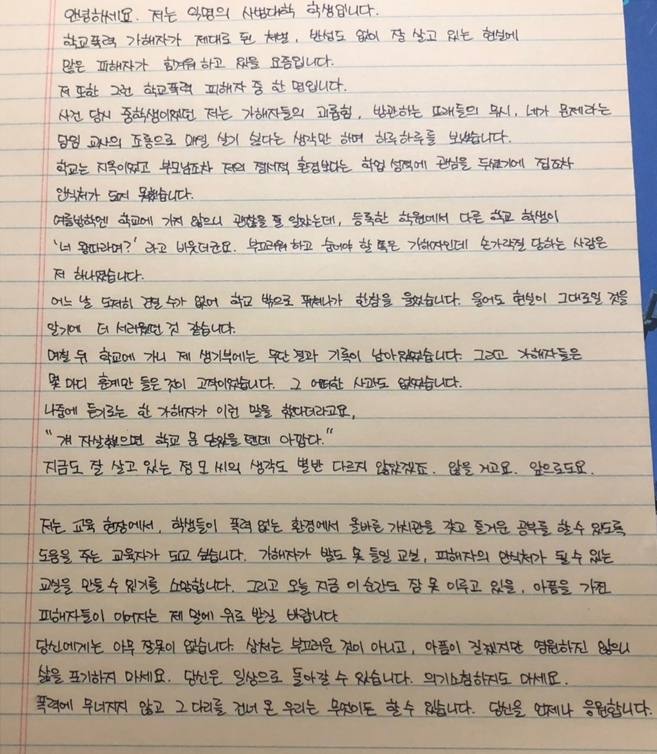 안녕하세요. 저는 익명의 사범대학 학생입니다.
학교폭력 가해자가 제대로 된 처벌, 반성도 없이 잘 살고 있는 현실에
많은 피해자가 힘겨워 하고 있을 요즘입니다.
저 또한 그런 학교폭력 피해자 중 한 명입니다.
사건 당시 중학생이었던 저는 가해자들의 괴롭힘, 방관하는 또래들의 무시, 네가 문제라는
담임 교사의 조롱으로 매일 살기 싫다는 생각만 하며 하루하루를 보냈습니다.
학교는 지옥이었고 부모님조차 저의 정서적 환경보다는 학업 성적에 관심을 두셨기에 집조차
안식처가 되지 못했습니다.
여름방학엔 학교에 가지 않으니 괜찮을 줄 알았는데, 등록한 학원에서 다른 학교 학생이
'너 왕따라며?' 라고 비웃더군요. 부끄러워하고 숨어야 할 쪽은 가해자인데 손가락질 당하는 사람은
저 하나였습니다.
어느 날 도저히 견딜 수가 없어 학교 밖으로 뛰쳐나가 한참을 울었습니다. 울어도 현실이 그대로일 것을
알기에 더 서러웠던 것 같습니다.
며칠 뒤 학교에 가니 제 생기부에는 무단 결과 기록이 남아있었습니다. 그리고 가해자들은
몇 마디 훈계만 들은 것이 고작이었습니다. 그 어떠한 사과도 없었습니다.
나중에 듣기로는 한 가해자가 이런 말을 했다더라고요,
"걔 자살했으면 학교 문 닫았을 텐데 아깝다."
지금도 잘 살고 있는 정 모 씨의 생각도 별반 다르지 않았겠죠. 않을 거고요. 앞으로도요.
저는 교육 현장에서, 학생들이 폭력 없는 환경에서 올바른 가치관을 갖고 즐거운 공부를 할 수 있도록
도움을 주는 교육자가 되고 싶습니다. 가해자가 발도 못 들일 교실, 피해자의 안식처가 될 수 있는
교실을 만들 수 있기를 소망합니다. 그리고 오늘 지금 이 순간도 잠 못 이루고 있을, 아픔을 가진
피해자들이 이어지는 제 말에 위로 받길 바랍니다
당신에게는 아무 잘못이 없습니다. 상처는 부끄러운 것이 아니고, 아픔이 길겠지만 영원하진 않으니
삶을 포기하지 마세요. 당신은 일상으로 돌아갈 수 있습니다. 의기소침하지도 마세요.
폭력에 무너지지 않고 그 다리를 건너 온 우리는 무엇이든 할 수 있습니다. 당신을 언제나 응원합니다.